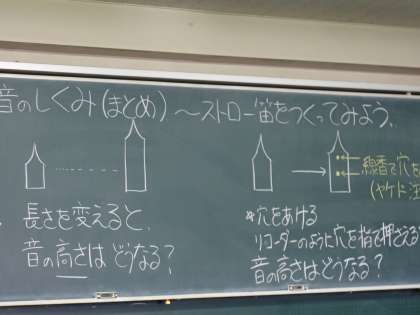 音のしくみ(まとめ) ~ストロー笛をつくってみよう.
長さを変えると、
音の高さは どうなる?
線香で穴を
(ヤケド注
*穴をあける
リコーダーのように穴を指で押さえる
音の高さはどうなる?